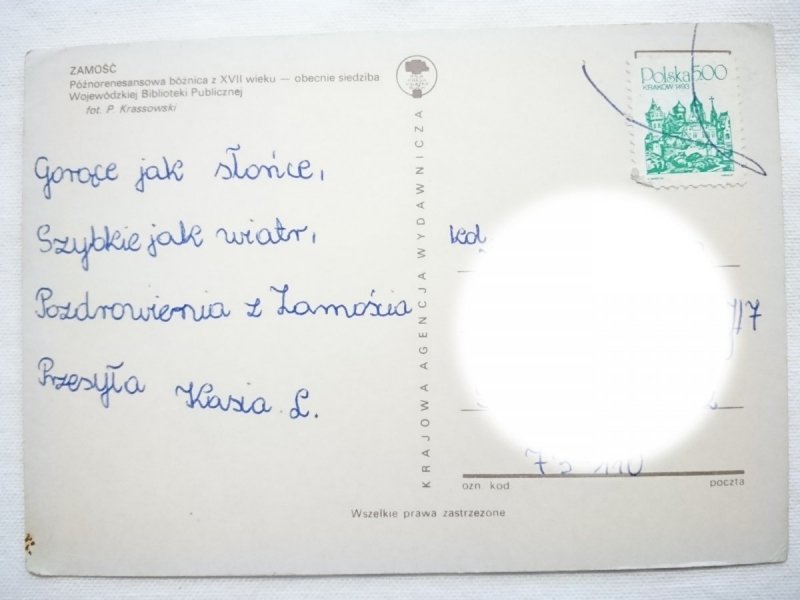 ZAMOŚĆ
Późnorenesansowa bóżnica z XVII wieku — obecnie siedziba
Wojewódzkiej Biblioteki Publicznej
fot. P. Krassowski
Gorące jak słońce,
Szybkie jak wiatr,
Pozdrowienia z Zamościa
Przesyła Kasia L.
KRAJOWA AGENCJA WYDAWNICZA
Polska 5.00
KRAKÓW 1493
kol.
7/7
ozn. kod
poczta
Wszelkie prawa zastrzeżone